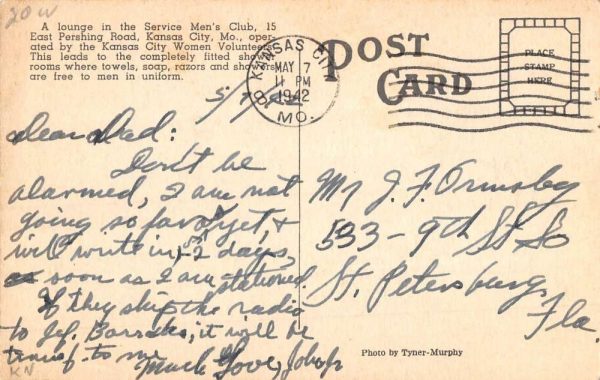 20 W
A lounge in the Service Men's Club, 15
East Pershing Road, Kansas City, Mo., oper-
ated by the Kansas City Women Volunteers.
This leads to the completely fitted shower
rooms where towels, soap, razors and showers
are free to men in uniform.
POST
CARD
PLACE
STAMP
HERE
KANSAS CITY
MAY 7
11 PM
1942
MO.
5/7/42
Dear Dad:
Don't be
alarmed, I am not
going so far yet, &
will write in 1-2 days,
as soon as I am stationed.
If they ship the radio
to Jef. Barracks, it will be
transf. to me.
Much Love, John Jr
Mr J. F. Ormsby
533 - 9th St So
St. Petersburg,
Fla.
Photo by Tyner-Murphy
KN